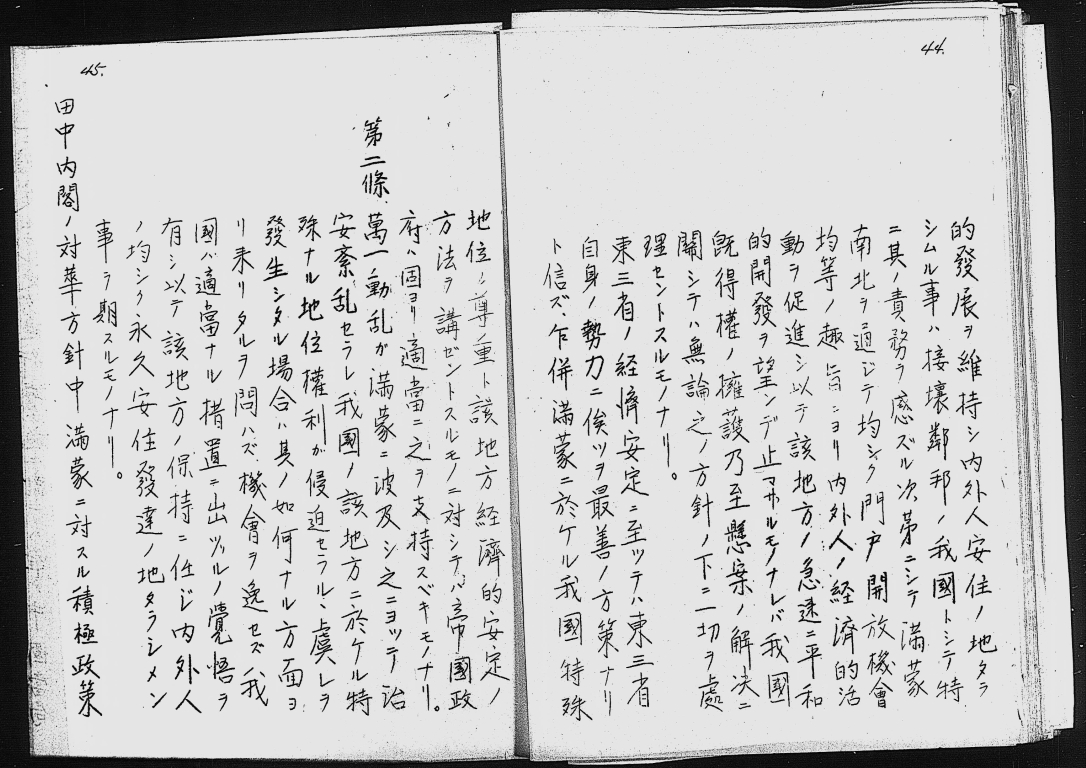 44.
的發展ヲ維持シ内外人安住ノ地タラ
シムル事ハ接壤鄰邦ノ我國トシテ特
ニ其ノ責務ヲ感ズル次第ニシテ滿蒙
南北ヲ通ジテ均シク門戸開放機會
均等ノ趣旨ニヨリ内外人ノ経済的活
動ヲ促進シ以テ該地方ノ急速ニ平和
的開發ヲ望ンデ止マザルモノナレバ我國
既得權ノ擁護乃至懸案ノ解决ニ
關シテハ無論之ノ方針ノ下ニ一切ヲ處
理セントスルモノナリ。
東三省ノ経濟安定ニ至ッテハ東三省
自身ノ勢力ニ俟ツヲ最善ノ方策ナリ
ト信ズ、乍併滿蒙ニ於ケル我國特殊
45.
地位ノ尊重ト該地方経濟的安定ノ
方法ヲ講ゼントスルモノニ対シテハ帝國政
府ハ固ヨリ適當ニ之ヲ支持スベキモノナリ。
第二條、萬一動乱ガ滿蒙ニ波及シ之ニヨッテ治
安紊乱セラレ我國ノ該地方ニ於ケル特
殊ナル地位權利ガ侵迫セラルヽ虞レヲ
發生シタル場合ハ其ノ如何ナル方面ヨ
リ来リタルヲ問ハズ、機會ヲ逸セズ我
國ハ適當ナル措置ニ出ヅルノ覺悟ヲ
有シ以テ該地方ノ保持ニ任ジ内外人
ノ均シク永久安住發達ノ地タラシメン
事ヲ期スルモノナリ。
田中内閣ノ対華方針中滿蒙ニ対スル積極政策